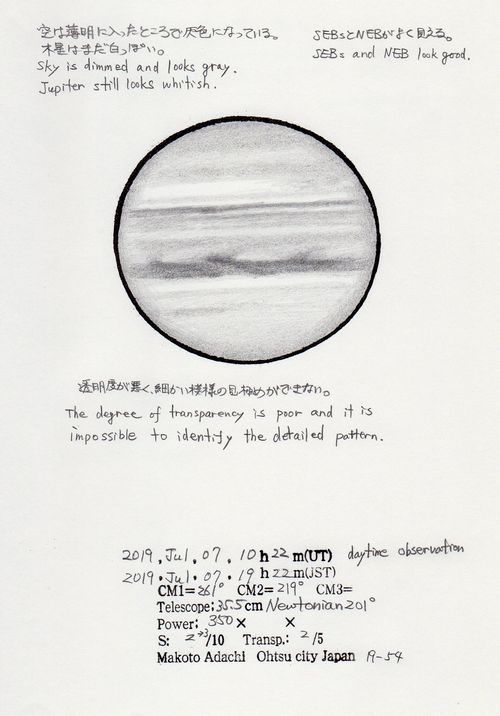 空は薄明に入ったところで灰色になっている。
木星はまだ白っぽい。
Sky is dimmed and looks gray.
Jupiter still looks whitish.
SEBsとNEBがよく見える。
SEBs and NEB look good.
透明度が悪く、細かい模様の見極めができない。
The degree of transparency is poor and it is
impossible to identify the detailed pattern.
2019, Jul, 07, 10 h 22 m(UT) daytime observation
2019・Jul・07・19 h 22 m(JST)
CM1= 261° CM2= 219° CM3=
Telescope; 35.5 cm Newtonian 201°
Power; 350 × ×
S: 2→3/10 Transp.: 2/5
Makoto Adachi Ohtsu city Japan 19-54